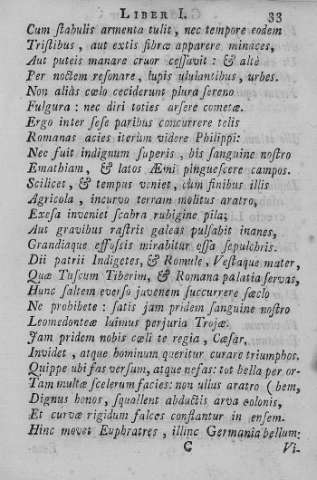 LIBER I. 33
Cum ſtabulis armenta tulit, nec tempore eodem
Triſtibus, aut extis fibræ apparere minaces,
Aut puteis manare cruor ceſſavit: & altè
Per noctem reſonare, lupis ululantibus, urbes.
Non aliàs cœlo ceciderunt plura ſereno
Fulgura: nec diri toties arſere cometæ.
Ergo inter ſeſe paribus concurrere telis
Romanas acies iterùm videre Philippi:
Nec fuit indignum ſuperis, bis ſanguine noſtro
Emathiam, & latos Æmi pingueſcere campos.
Scilicet, & tempus veniet, cùm finibus illis
Agricola, incurvo terram molitus aratro,
Exeſa inveniet ſcabra rubigine pila;
Aut gravibus raſtris galeas pulſabit inanes,
Grandiaque effoſsis mirabitur oſſa ſepulchris.
Dii patrii Indigetes, & Romule, Veſtaque mater,
Quæ Tuſcum Tiberim, & Romana palatia ſervas,
Hunc ſaltem everſo juvenem ſuccurrere ſæclo
Ne prohibete: ſatis jam pridem ſanguine noſtro
Leomedonteæ luimus perjuria Trojæ.
Jam pridem nobis cœli te regia, Cæſar,
Invidet, atque hominum queritur curare triumphos.
Quippe ubi fas verſum, atque nefas: tot bella per or-
Tam multæ ſcelerum facies: non ullus aratro (bem,
Dignus honos, ſquallent abductis arva colonis,
Et curvæ rigidum falces conflantur in enſem.
Hinc movet Euphratres, illinc Germania bellum:
C Vi-